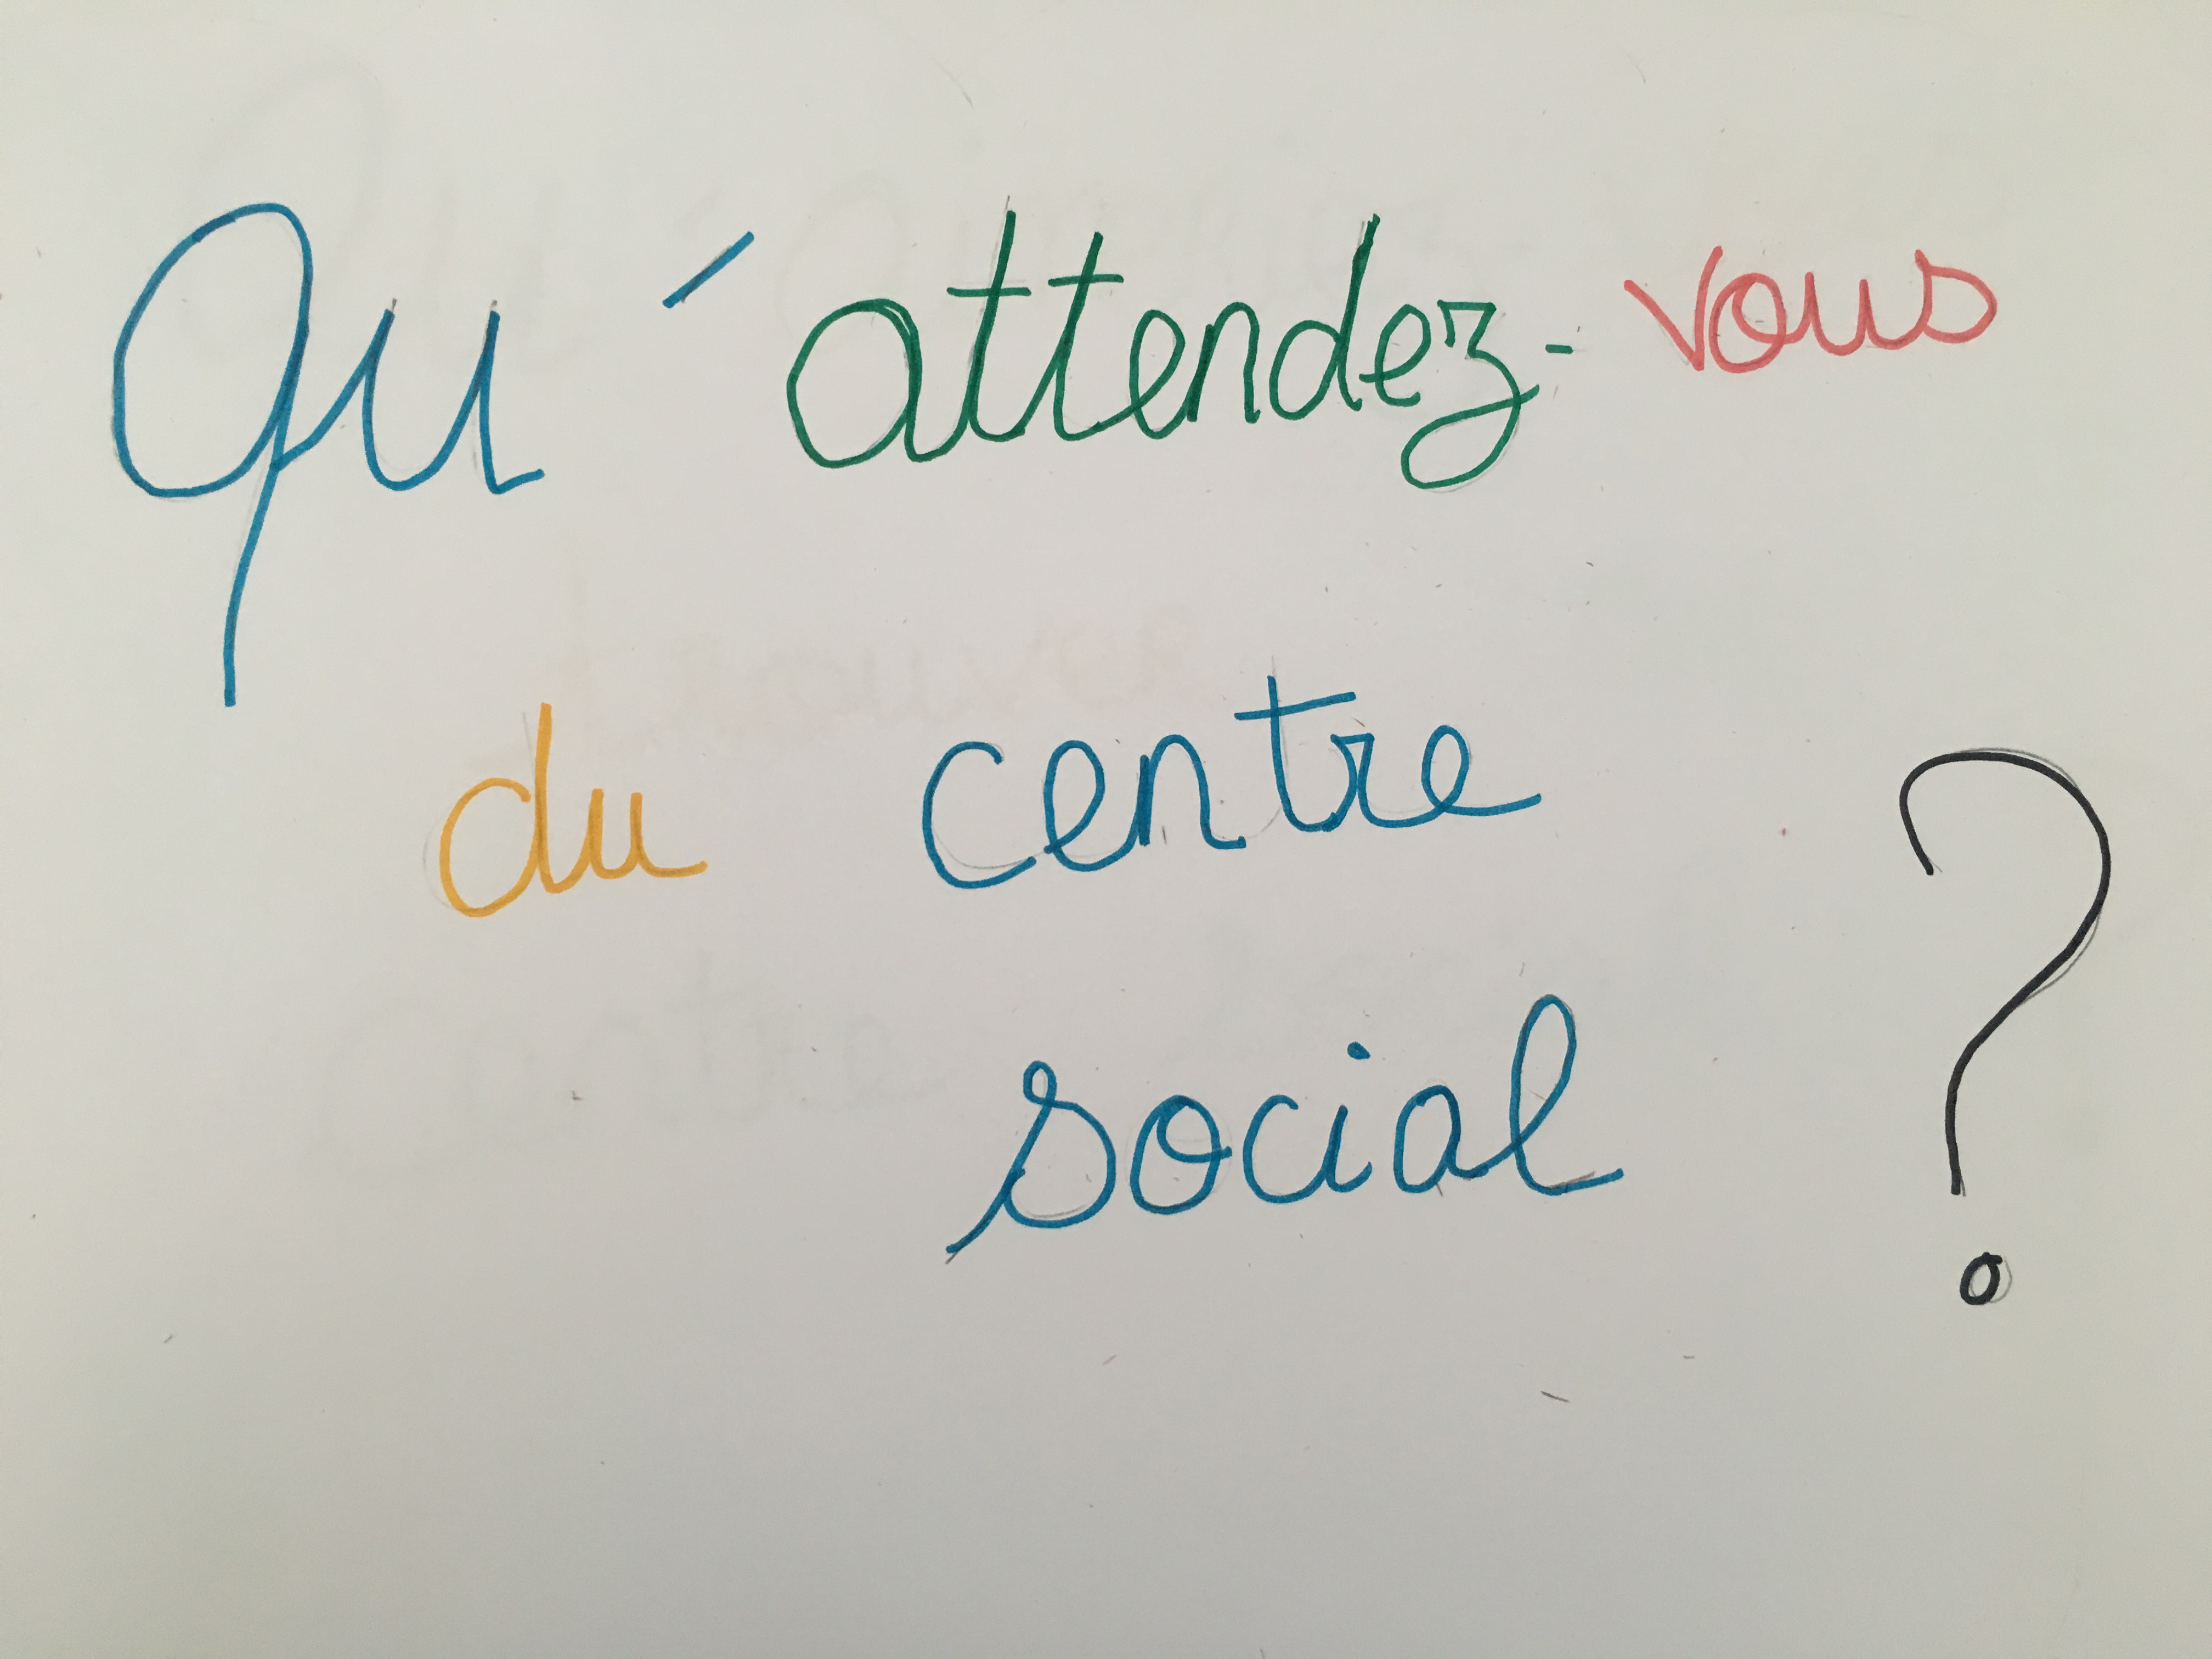 Qu'attendez-vous
du centre
social ?